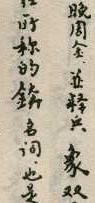 晚周金，並释兵 象双
所称的鐱名词，也是